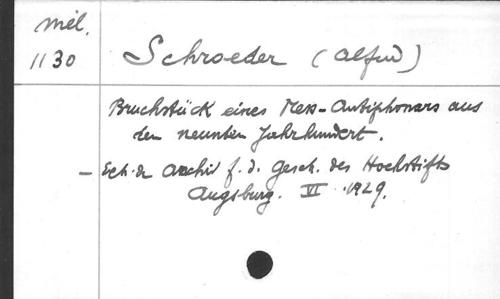 mél.
1130
Schroeder (Alfred)
Bruchstück eines Mess-Antiphonars aus
dem neunten Jahrhundert.
- Ext. de Archiv f. d. Gesch. des Hochstifts
Augsburg. VI. 1929.